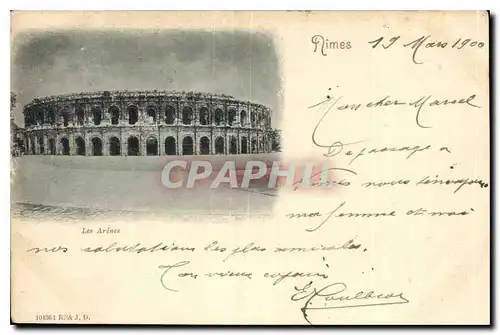 Nimes
19 Mars 1900
Mon cher Marcel
De passage a
Nimes nous t'envoyons
ma femme et moi
Les Arènes
nos salutations les plus amicales.
Ton vieux copain
E. Coulbeau
CPARAMA
104364 B. & J. D.